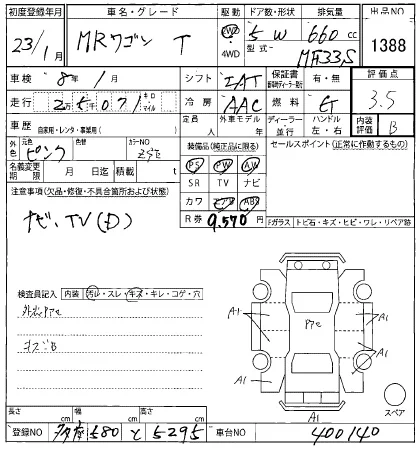 初度登録年月 車名・グレード 駆動 ドア数・形状 排気量 出品NO
23/1月 MRワゴン T 2WD 4WD 5 W 660cc 1388
型式 MF33S
車検 8年/月 シフト IAT 保証書 有・無 評価点
走行 2万5071 キロ マイル 冷房 AAC 燃料 G 3.5
車歴 自家用・レンタ・事業用( ) 定員 人 外車モデル 年 ディーラー 並行 ハンドル 左・右 内装評価 B
外色 元色 ピンク 色替 カラーNO ZSE 装備品(純正品に限る) セールスポイント(正常に作動するもの)
名義変更期限 月 日迄 積載 t PS PW AW
注意事項(欠品・修復・不具合箇所および状態) SR TV ナビ
ナビ,TV(D) カワ エアB ABS
R券 9,570 Fガラス トビ石・キズ・ヒビ・ワレ・リペア跡
検査員記入 内装 汚レ・スレ・キズ・キレ・コゲ・穴
A1
A1
A1
A1
A1
スペア
A1
長さ cm 幅 cm 高さ cm
登録NO 多摩 580 と 5295 車台NO 400140